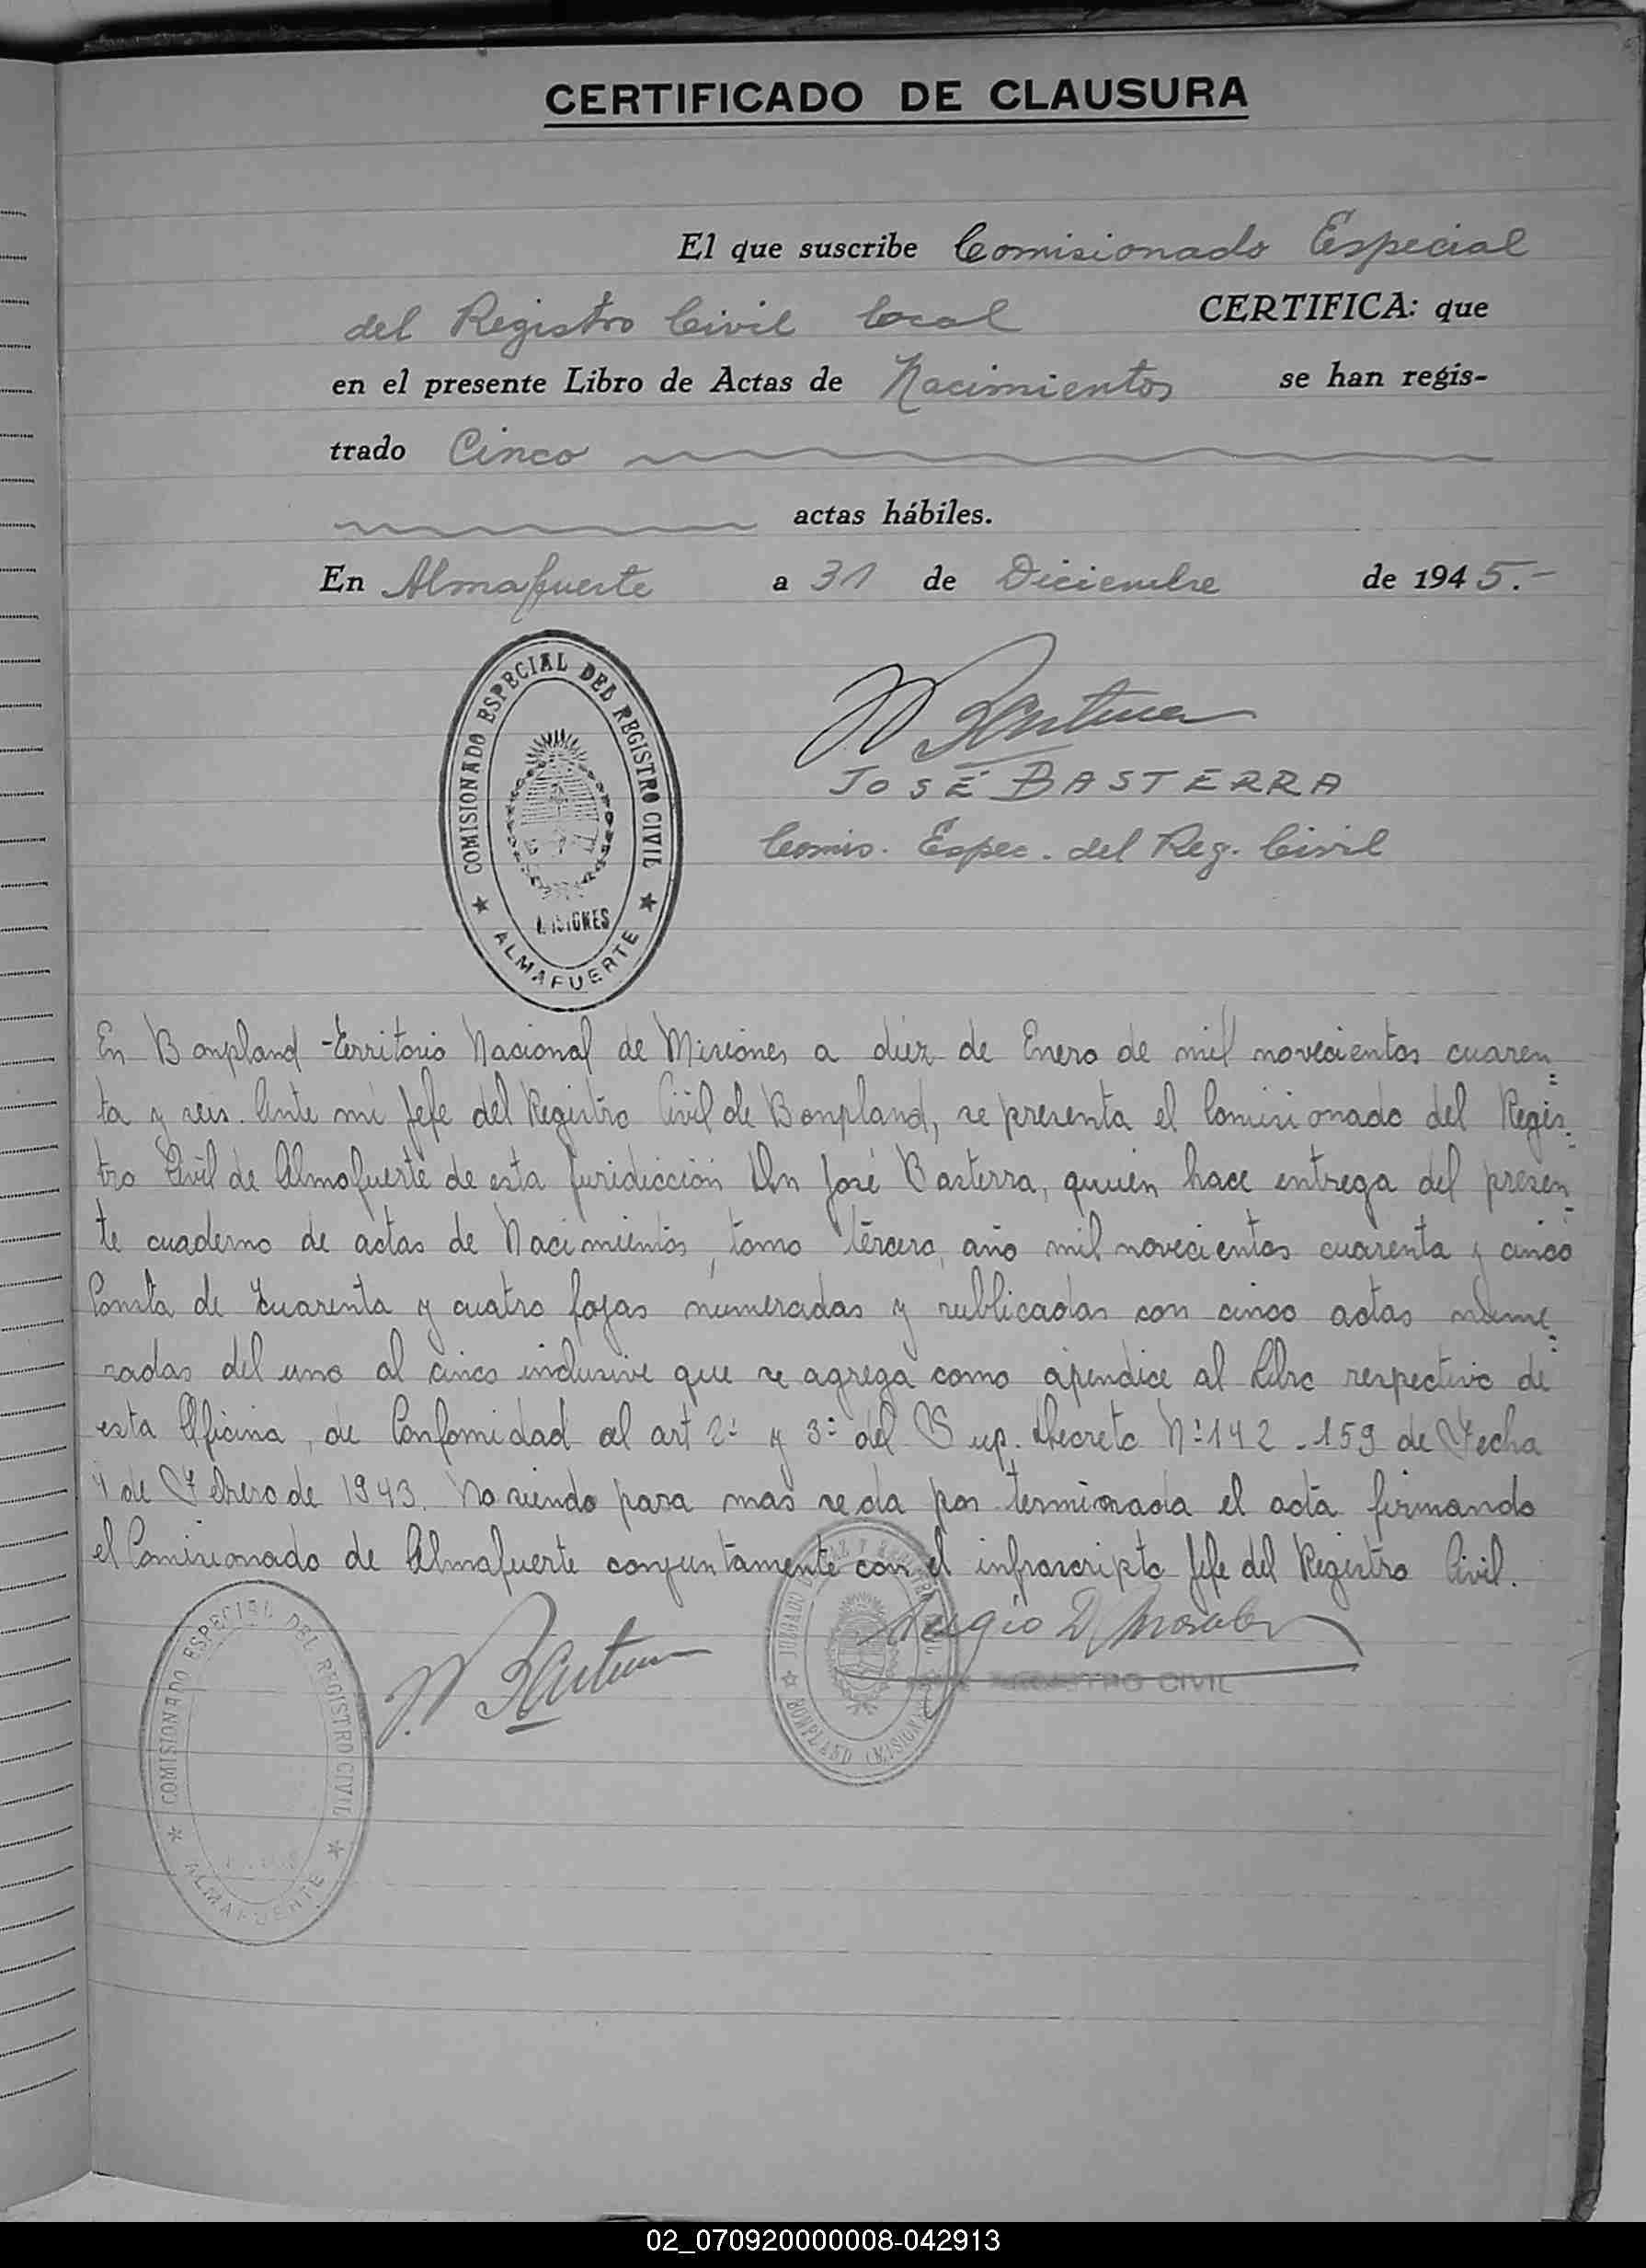 CERTIFICADO DE CLAUSURA
El que suscribe Comisionado Especial
del Registro Civil local CERTIFICA: que
en el presente Libro de Actas de Nacimientos se han regis-
trado Cinco
actas hábiles.
En Almafuerte a 31 de Diciembre de 1945.-
COMISIONADO ESPECIAL DEL REGISTRO CIVIL
MISIONES
ALMAFUERTE
JOSÉ BASTERRA
Comis. Espec. del Reg. Civil
En Bonpland - Territorio Nacional de Misiones a diez de Enero de mil novecientos cuaren=
ta y seis. Ante mi Jefe del Registro Civil de Bonpland, se presenta el Comisionado del Regis=
tro Civil de Almafuerte de esta Juridicción Dn José Basterra, quien hace entrega del presen=
te cuaderno de actas de Nacimientos, tomo tercero, año mil novecientos cuarenta y cinco
Consta de cuarenta y cuatro fojas numeradas y rublicadas con cinco actas nume=
radas del uno al cinco inclusive que se agrega como apendice al Libro respectivo de
esta Oficina, de Confomidad al art 2º y 3º del Sup. Decreto Nº 142-159 de Fecha
4 de Febrero de 1943. No siendo para mas se da por terminada el acta firmando
el Comisionado de Almafuerte conjuntamente con el infrascripto Jefe del Registro Civil.
COMISIONADO ESPECIAL DEL REGISTRO CIVIL
ALMAFUERTE
JUZGADO DE PAZ Y
BONPLAND (MISIONES)
REGISTRO CIVIL
02_070920000008-042913